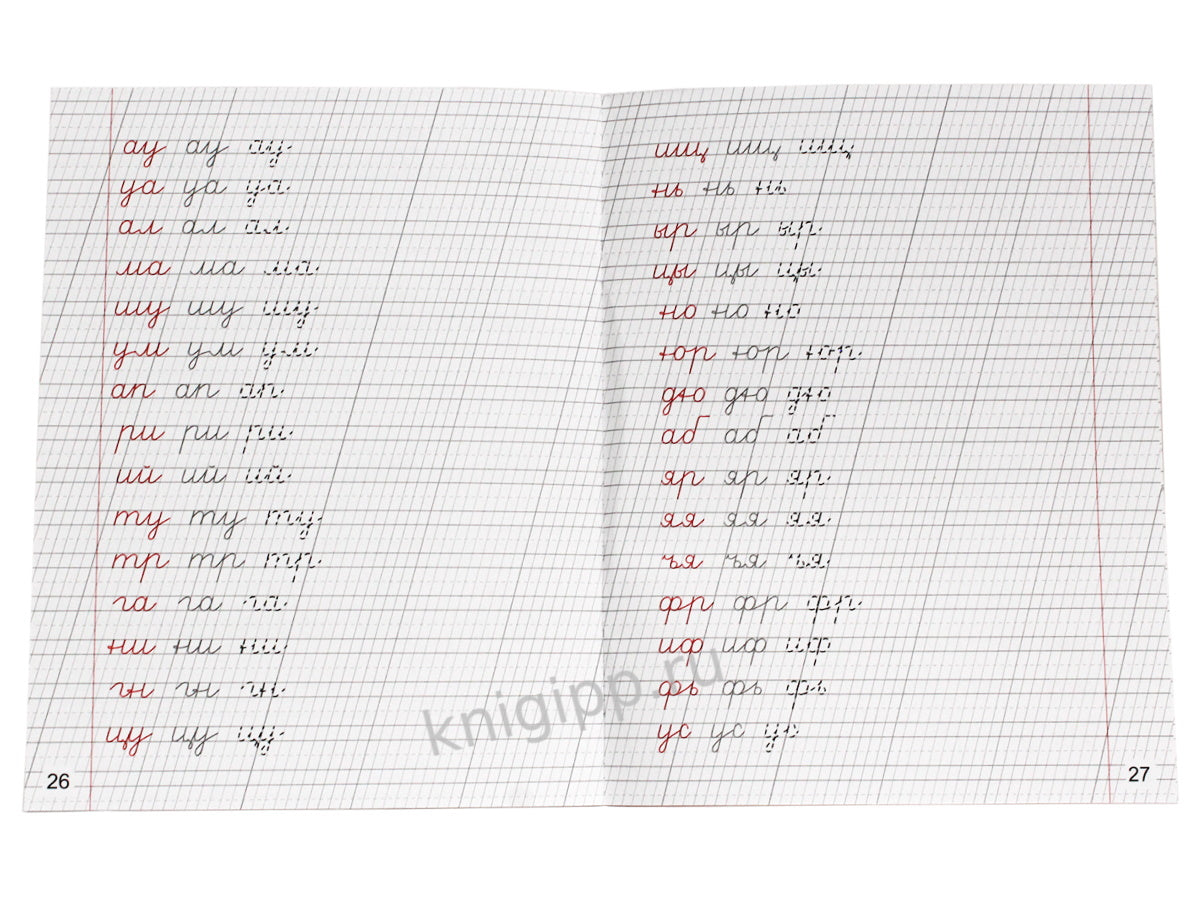 ау ау ау
уа уа уа
ал ал ал
ма ма ма
шу шу шу
ум ум ум
ап ап ап
ри ри ри
ий ий ий
ту ту ту
тр тр тр
га га га
ни ни ни
гн гн гн
цу цу цу
26
ищ ищ ищ
нь нь нь
ыр ыр ыр
цы цы цы
но но но
юр юр юр
дю дю дю
аб аб аб
яр яр яр
яя яя яя
ъя ъя ъя
фр фр фр
иф иф иф
фь фь фь
ус ус ус
27
knigipp.ru